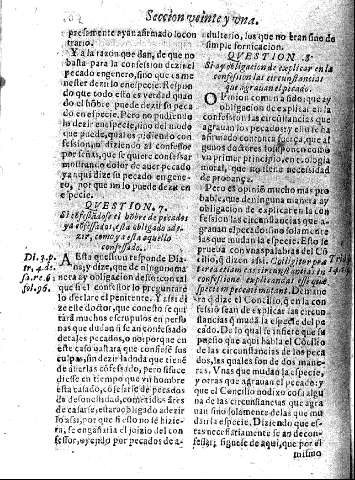 Seccion veinte y vna.
presamente ayan afirmado lo con
trario.
Y a la razon que dan, de que no
basta para la confession dezir el
pecado en genero, sino que es me
nester dezirlo en especie. Respon
do que todo esto es verdad quan
do el hõbre puede dezir su peca
do en especie. Pero no pudiendo
lo dezir en especie, sino del modo
que puede,
no, diziendo al confessor
por señas, que se quiere confessar
mostrando dolor de auer pecado
ya aqui dize su pecado en gene
ro, por que no lo puede dezir en
especie.
QUESTION. 7.
Si cõfessãdose el hõbre de pecados
ya cõfessados, està obligado a de
zir, como ya està aquello
confessado.
Di. 3. p.
tr. 4. de
sa. re. 6.
sol. 96.
A Esta question responde Dia
na, y dize, que de ninguna ma
nera ay obligacion dessor con tal
que si el confessor lo preguntarè
lo declare el penitente. Y assi di
ze este doctor, que con esto se qui
tarà muchos escrupulos en perso
nas que dudan si se an confessado
de tales pecados, o no: porque en
este caso bastarà que confiesse sus
culpas, sin dezir la duda que tiene
de auerlas cõfessado, pero si su ce
diesse en tiempo que vn hombre
està casado, cõfessarse de pecados
de desonestidad, cometidos ãtes
de casarse, estaràobligado a dezir
lo assi, por que si esto no se hizie-
se, se engañaria el juizio del con
fessor, oyendo por pecados de a-
adulterio, los que no eran sino de
simple fornicacion.
QUESTION. 8.
Si ay obligacion de explicar en la
confession las circunstancias
que agrauan el pecado.
OPinion comun a sido, que ay
obligacion de explicar en la
confession las circunstancias que
agrauan los pecados: y esto se ha
afirmado con tanta fuerça, que al
gunos doctores lo suponen como
vn primer principio, en teologia
moral, que no tiene necesidad
de prouança.
Pero es opinion mucho mas pro
bable, que de ninguna manera ay
obligacion de explicar en la con
fession las circunstancias que a-
grauan el pecado sino solamente
las que mudan especie. Esto se
prueua con vnas palabras del Con
cilio, q dizen assi.
explicandas esse que
speciem peccati mutant. De mane
ra q dize el Concilio, q en la con
fession sean de explicar las circuns
tancias q mudã la especie del pe
cado. De lo qual se infiere que su
puesto que aqui habla el Cõcilio
de las circunstancias de los peca
dos, las quales son de dos mane
ras. Vnas que mudan la especie,
y otras que agrauan el pecado: y
que el Concilio no dixo cosa algu
na de las circunstancias que agra
uan sino solamente de las que mu
dan la especie, Diziendo que es-
tas necessariamente se an de con-
fessar; siguese de aqui, que por el
mismo